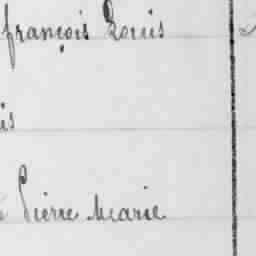 françois Louis
is
Pierre Marie